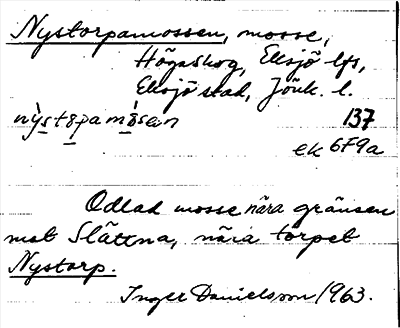 Nystorpamossen, mosse,
Högaskog, Eksjö lfs,
Eksjö stad, Jönk. l.
nỳstọpamòsan 137
ek 6F9a
Odlad mosse nära gränsen
mot Slättna, nära torpet
Nystorp.
Inger Danielsson 1963.